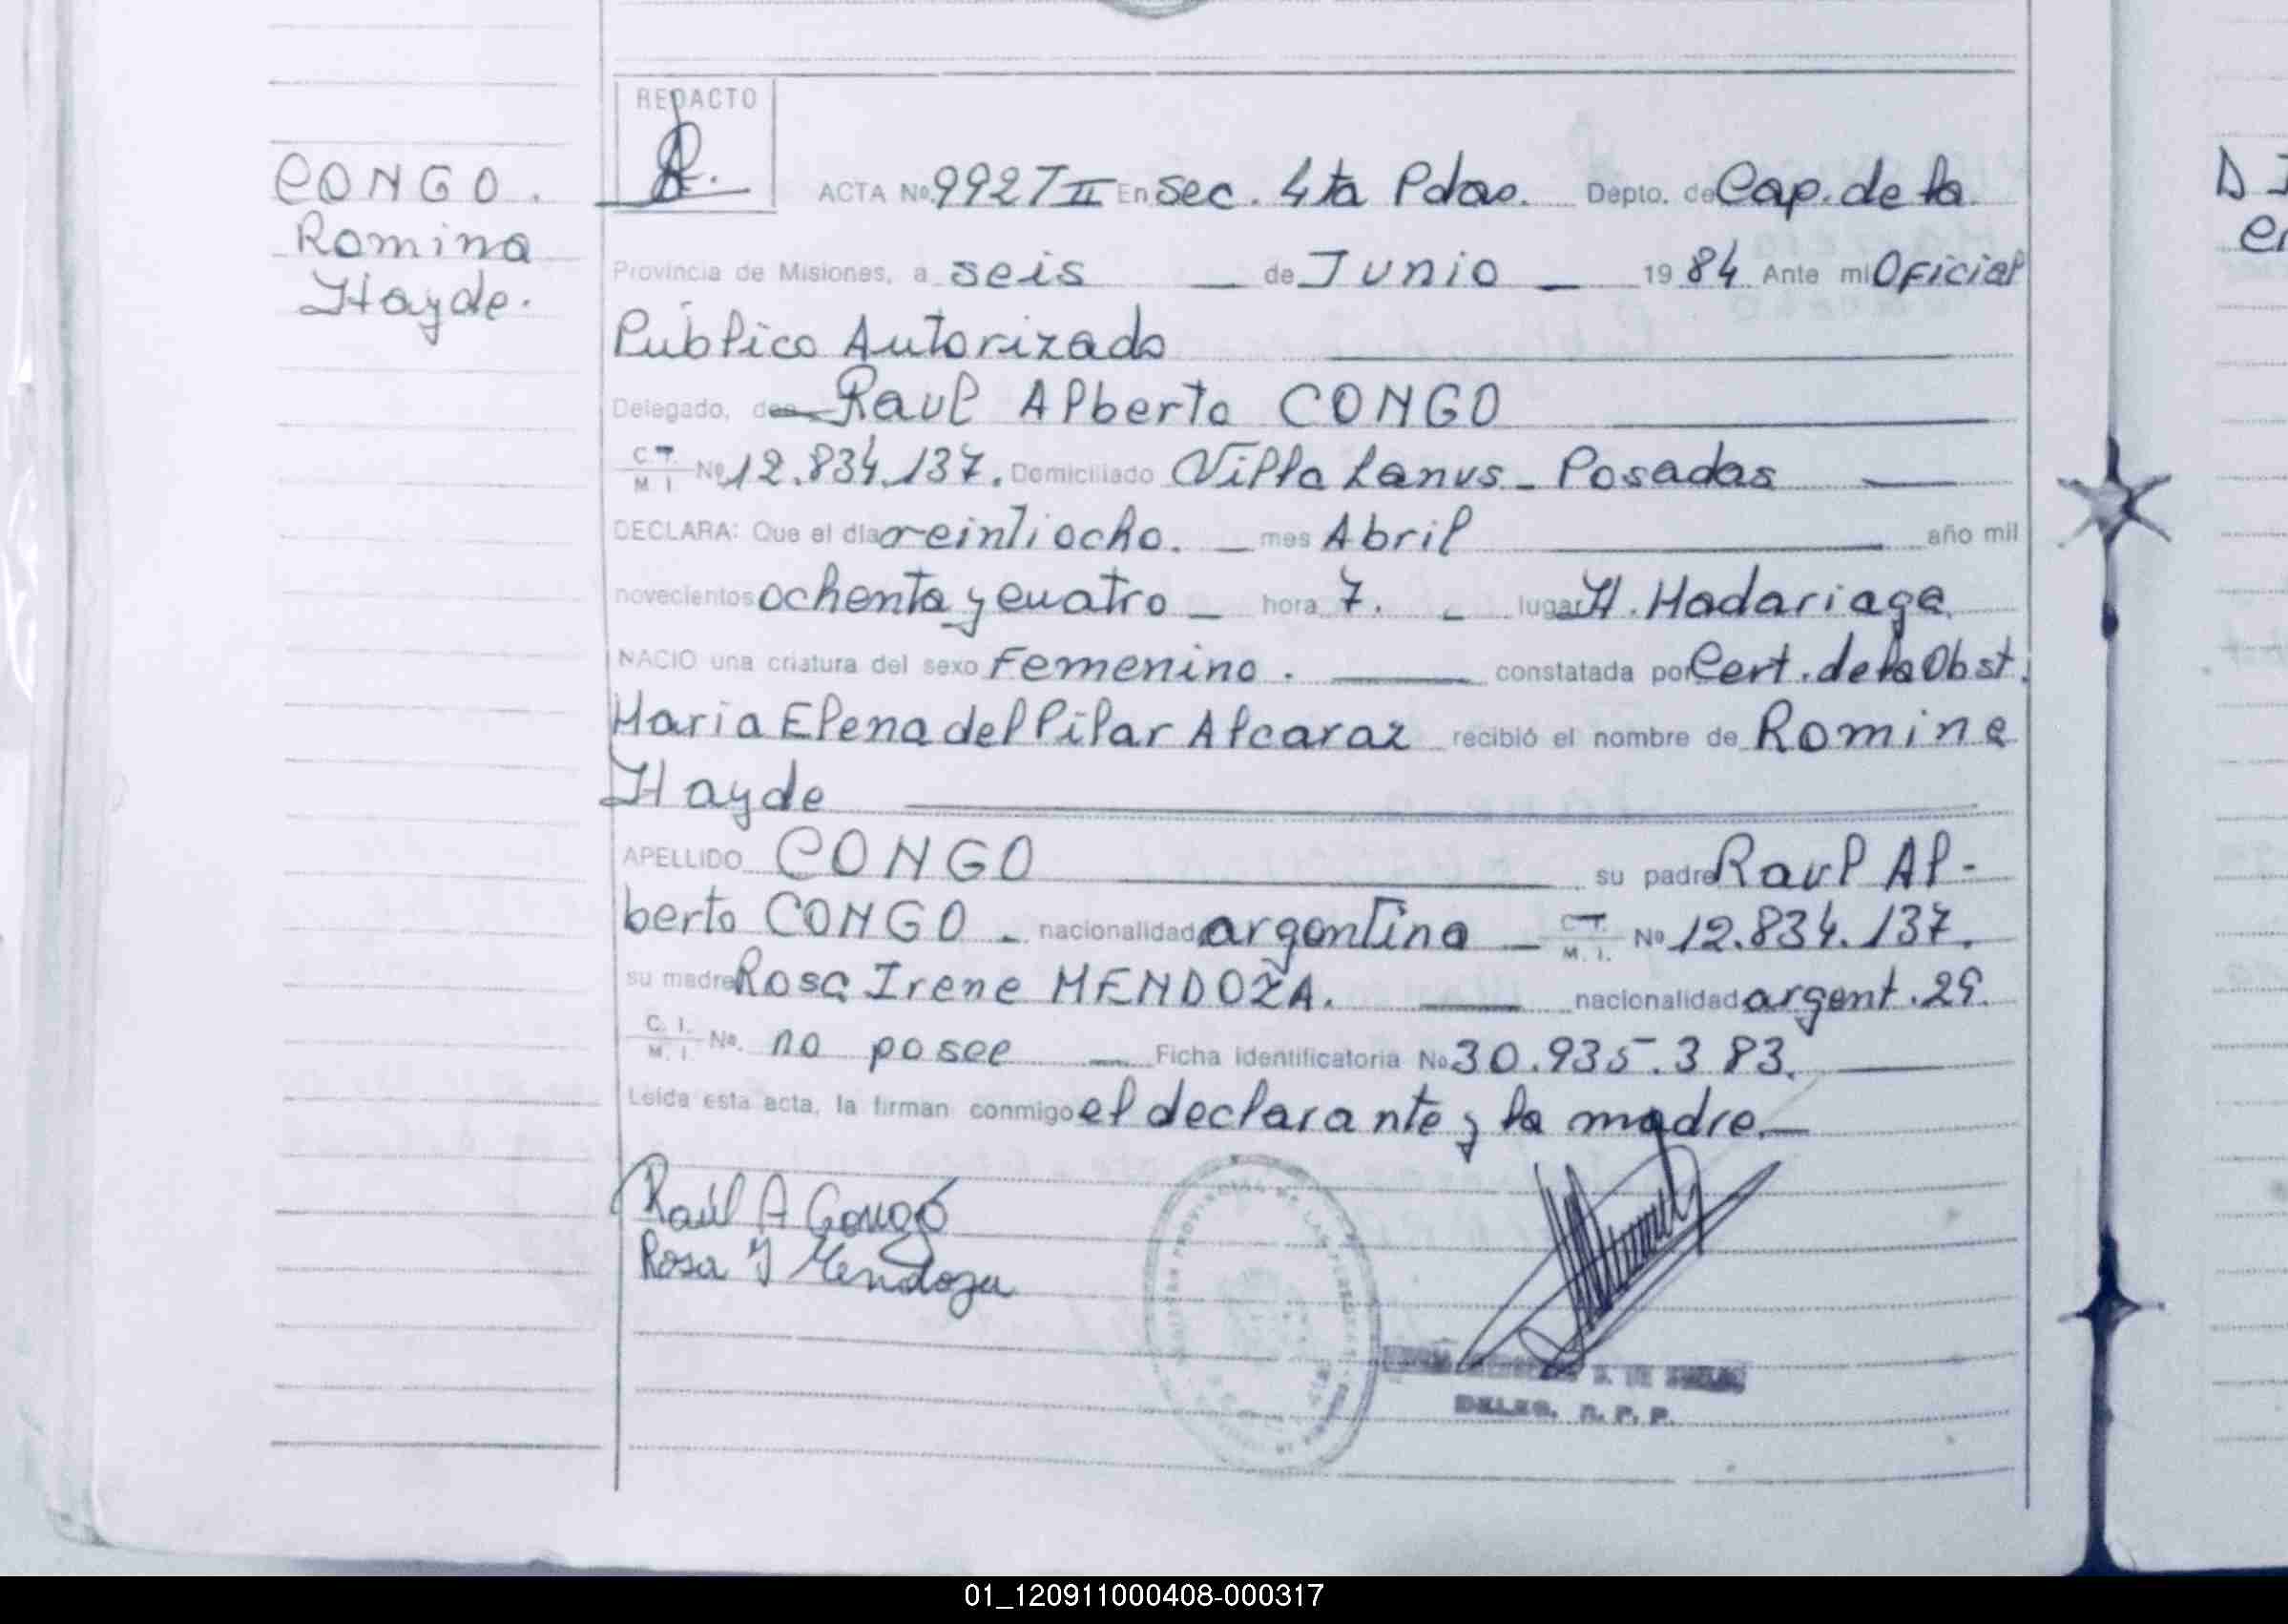 CONGO.
Romina
Hayde.
REDACTO
ACTA Nº 9927 II En Sec. 4ta Pdas. Depto. de Cap. de la
Provincia de Misiones, a seis de Junio 1984 Ante mi Oficial
Público Autorizado
Delegado, don Raul Alberto CONGO
C. I. M. I. Nº 12.834.137. Domiciliado Villa Lanus - Posadas
DECLARA: Que el día veintiocho. mes Abril año mil
novecientos ochenta y cuatro hora 7. lugar H. Madariaga
NACIO una criatura del sexo Femenino. constatada por Cert. de la Obst.
Maria Elena del Pilar Alcaraz recibió el nombre de Romina
Hayde
APELLIDO CONGO su padre Raul Al-
berto CONGO - nacionalidad argentina C. I. M. I. Nº 12.834.137.
su madre Rosa Irene MENDOZA. nacionalidad argent.
C. I. M. I. Nº. no posee Ficha identificatoria Nº 30.935.383.
Leída esta acta, la firman conmigo el declarante y la madre.
Raúl A Congo
Rosa I Mendoza
DELEG. R. P. P.
01_120911000408-000317